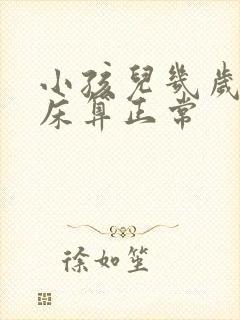 小孩兒幾歲
床算正常
徐如笙